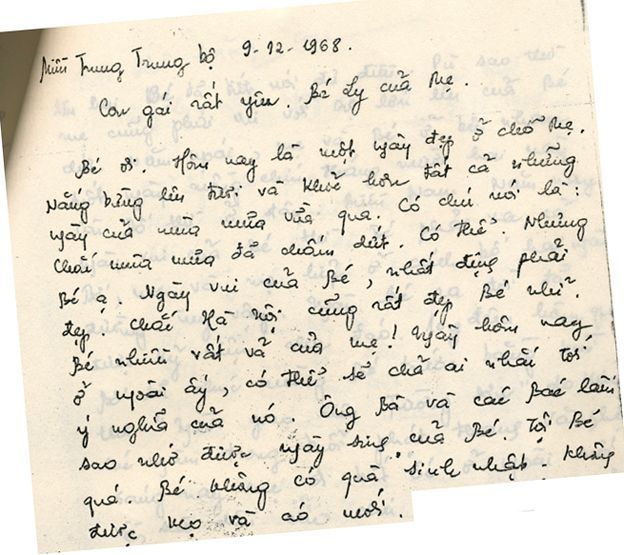 Miền Trung Trung bộ 9-12-1968.
Con gái rất yêu. Bé Ly của Mẹ.
Bé ơi. Hôm nay là một ngày đẹp ở chỗ Mẹ.
Nắng bừng lên tươi và khoẻ hơn tất cả những
ngày của mùa mưa vừa qua. Có chú nói là:
chắc mùa mưa đã chấm dứt. Có thể. Nhưng
Bé ạ. Ngày vui của Bé, nhất định phải
đẹp. chắc Hà Nội cũng rất đẹp Bé nhỉ.
Bé nhiều vất vả của mẹ! Ngày hôm nay
ở ngoài ấy, có thể sẽ chả ai nhắc tới
ý nghĩa của nó. Ông Bà và các Bác làm
sao nhớ được ngày sinh của Bé Tội Bé
quá. Bé không có quà sinh nhật. Không
được Mẹ và có